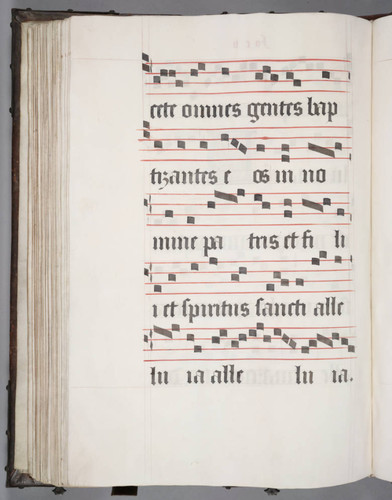 cete omnes gentes bap
tizantes e os in no
mine pa tris et fi li
i et spiritus sancti alle
lu ia alle lu ia.